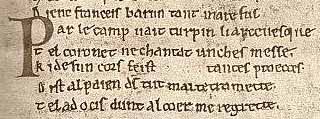 D ient franceis barun tant mare fus
Par le camp uait turpin li arceuesque
T el coronet ne chantat unches messe
K i de sun cors feist tantes proecces
D ist al paien d̄s tut mal te tramette
T el ad ocis dunt al coer me regrette.